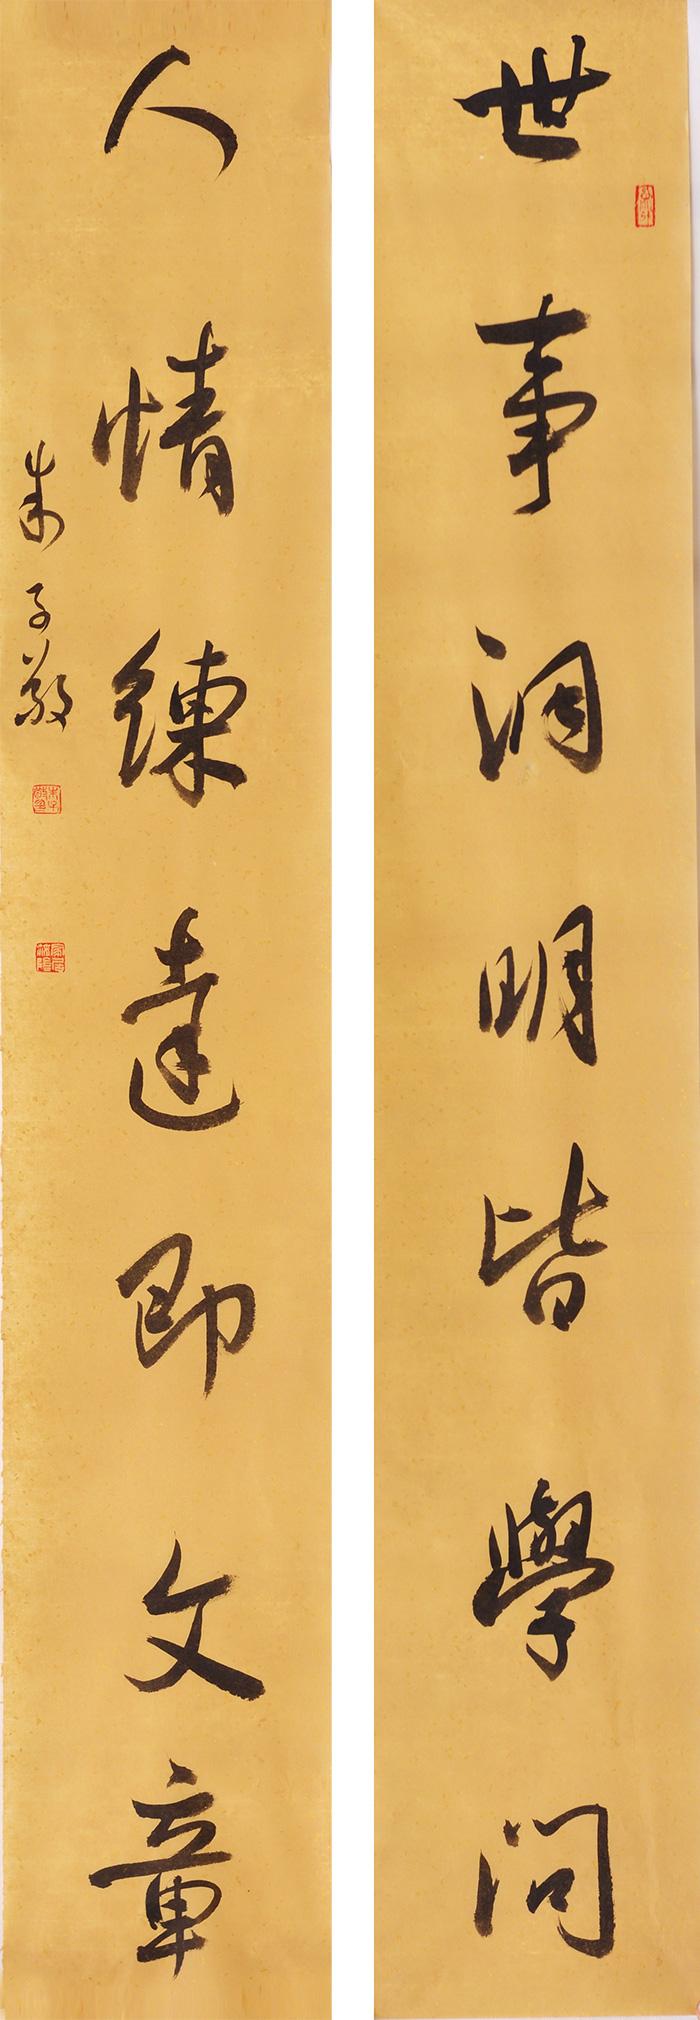 世事洞明皆學问
人情練達即文章
朱子敬